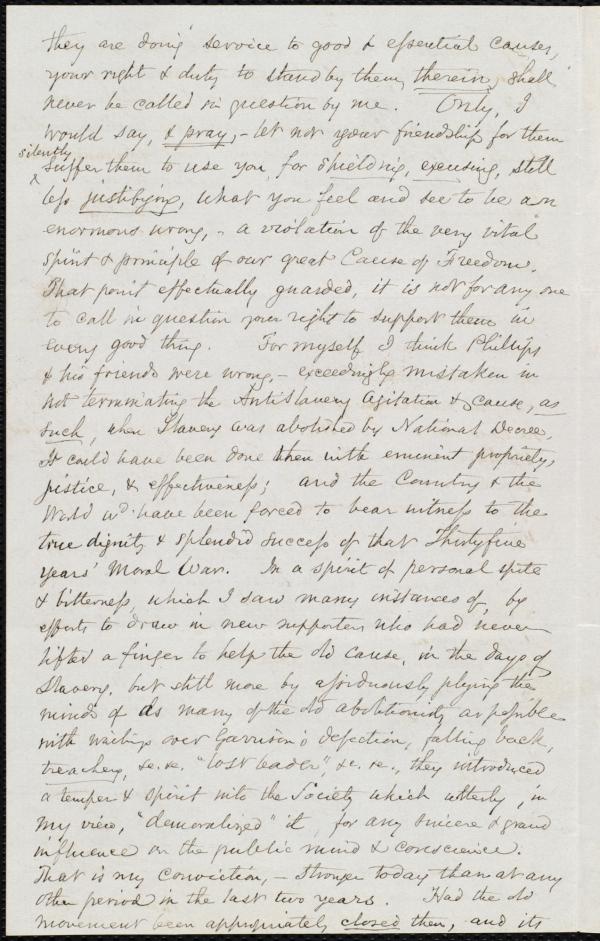 they are doing service to good & essential causes,
your right & duty to stand by them, therein, shall
never be called in question by me. Only, I
would say, & pray, - let not your friendship for them
silently
suffer them to use you, for shielding, excusing, still
less justifying, what you feel and see to be an
enormous wrong, - a violation of the very vital
spirit & principle of our great Cause of Freedom.
That point effectually guarded, it is not for any one
to call in question your right to support them in
every good thing. For myself I think Phillips
& his friends were wrong, - exceedingly mistaken in
not terminating the AntiSlavery agitation & cause, as
such, when Slavery was abolished by National Decree.
It could have been done then with eminent propriety,
justice, & effectiveness; and the Country & the
World wd. have been forced to bear witness to the
true dignity & splendid success of that Thirty five
years' Moral War. In a spirit of personal spite
& bitterness, which I saw many instances of, by
efforts to draw in new supporters who had never
lifted a finger to help the old cause, in the days of
Slavery, but still more by assiduously plying the
minds of as many of the old abolitionists as possible
with writings over Garrison's defection, falling back,
treachery, &c. &c. "lost leader", &c. &c., they introduced
a temper & spirit into the Society which utterly, in
my view, "demoralized" it, for any sincere & grand
influence on the public mind & conscience.
That is my conviction, - stronger today than at any
other period in the last two years. Had the old
movement been appropriately closed then, and its